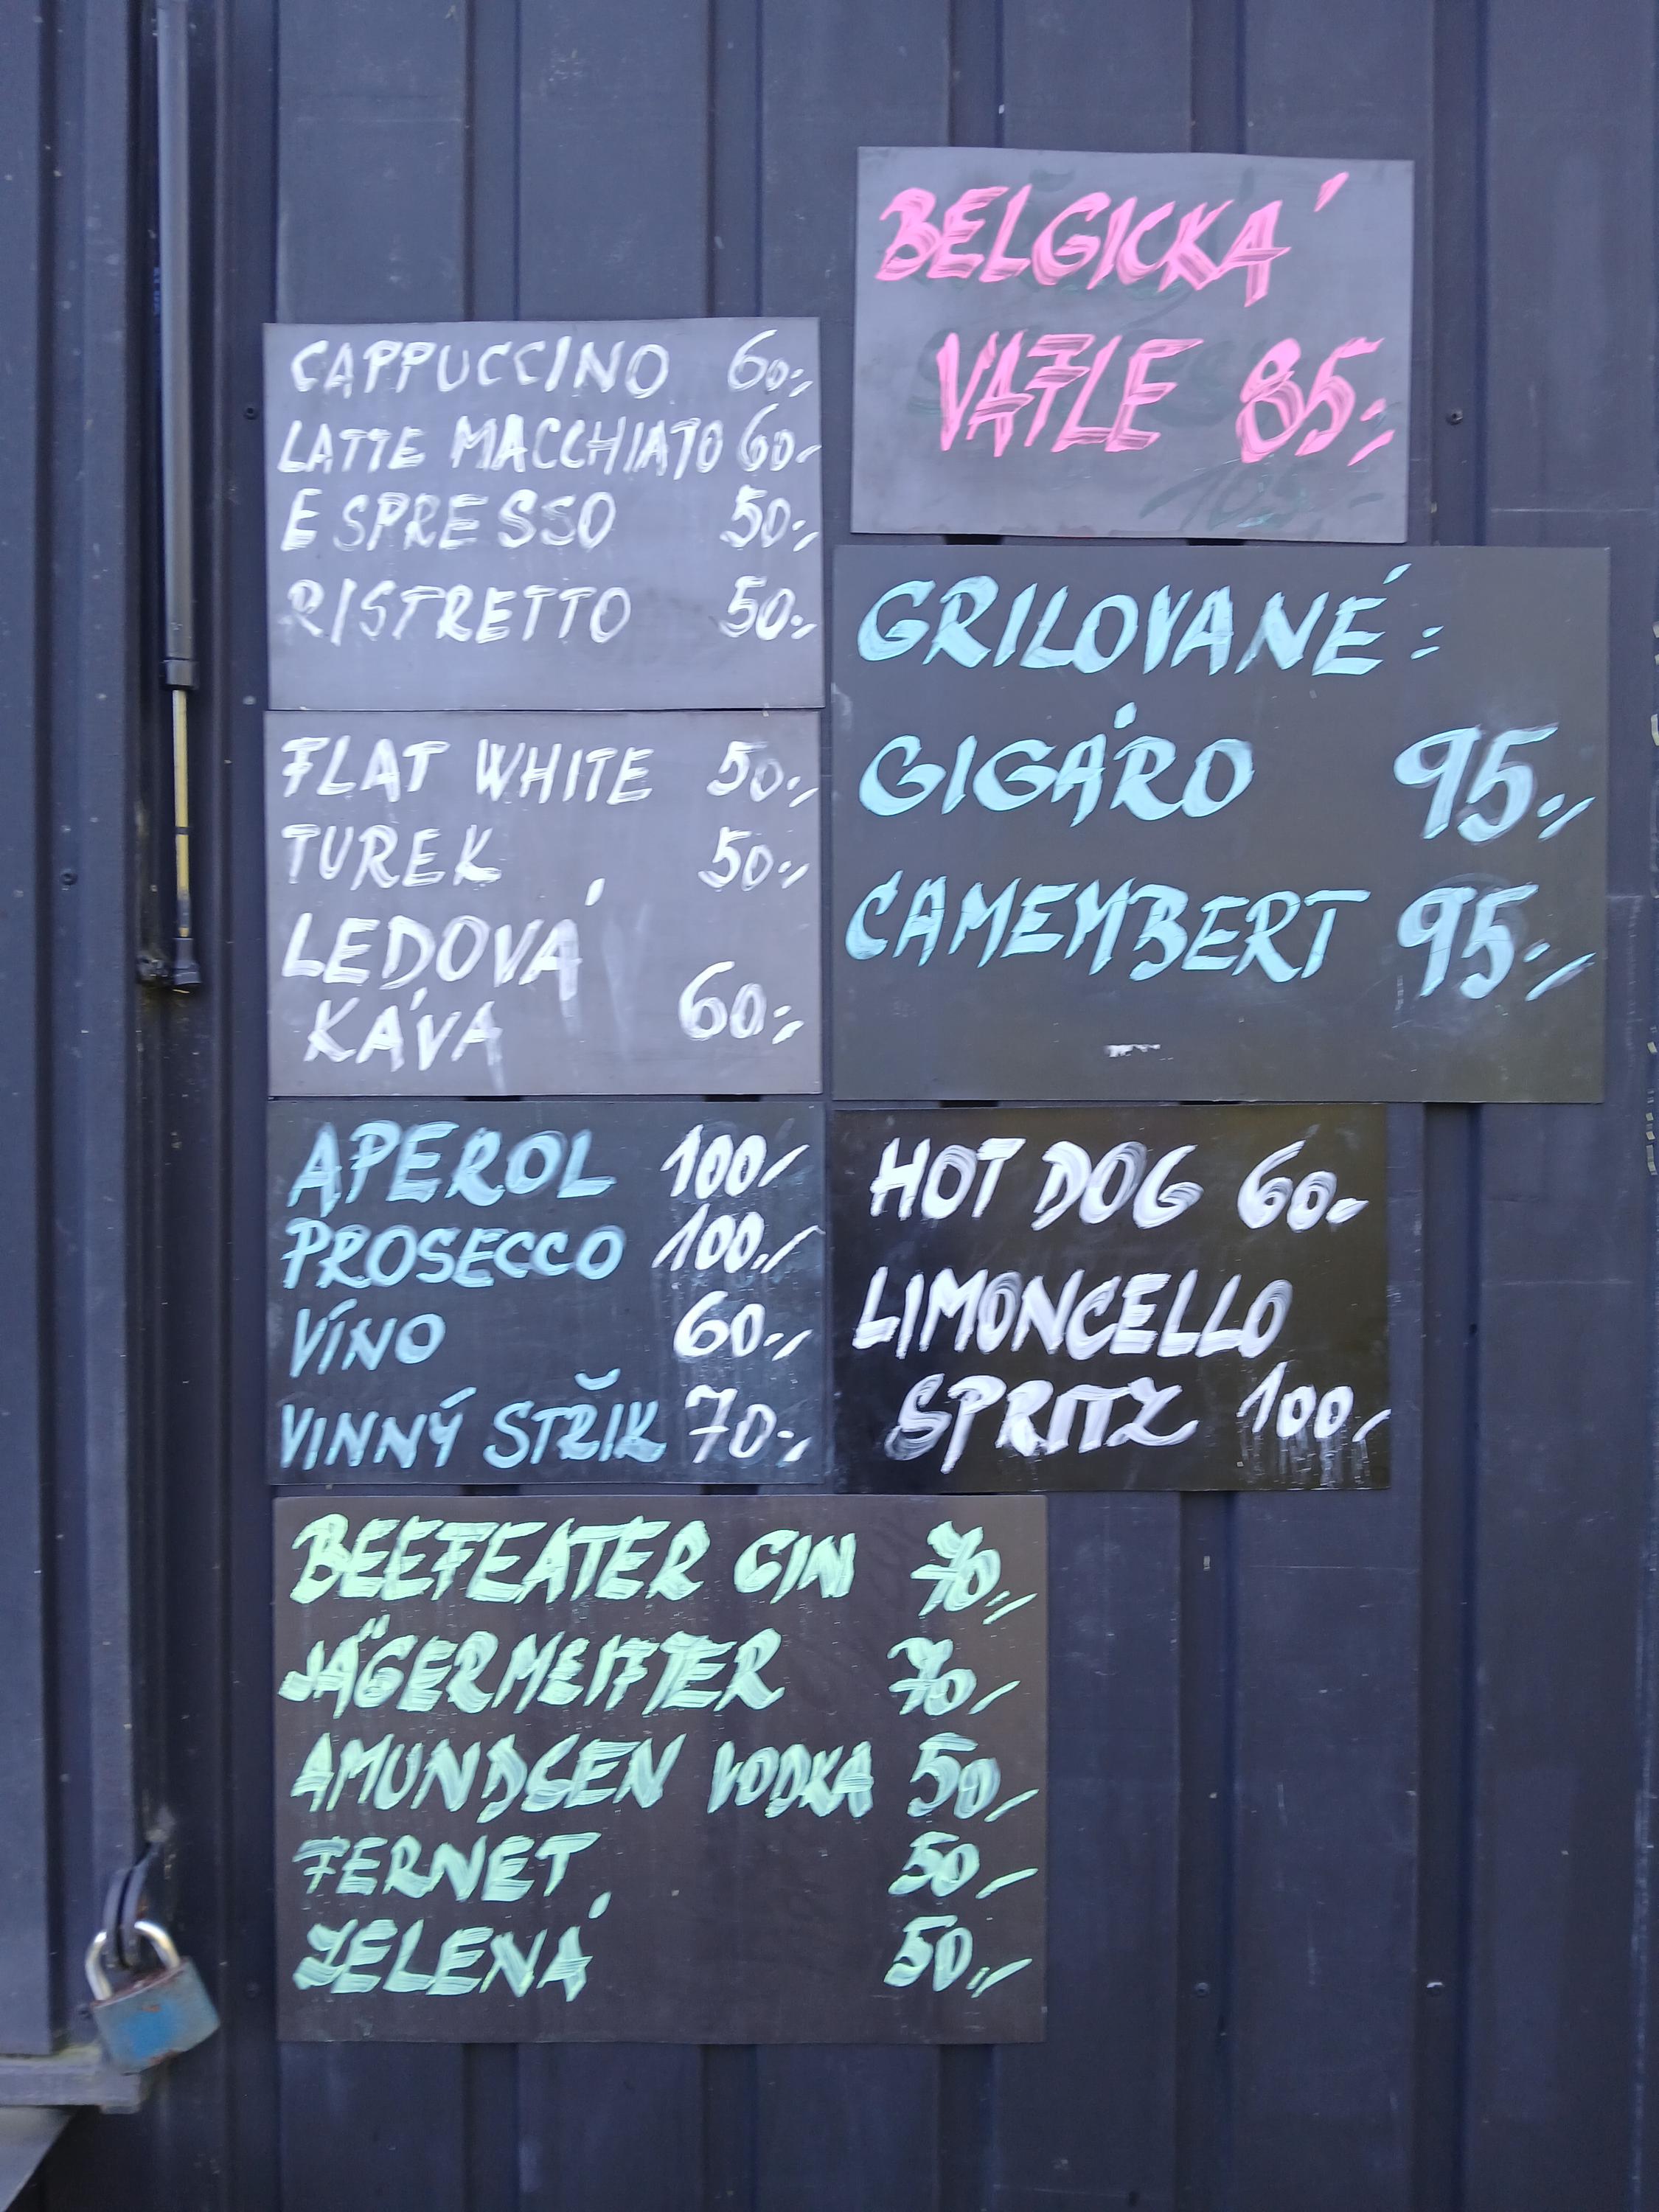 CAPPUCCINO 60.-
LATTE MACCHIATO 60.-
ESPRESSO 50.-
RISTRETTO 50.-
FLAT WHITE 50.-
TUREK 50.-
LEDOVÁ
KÁVA 60.-
APEROL 100/
PROSECCO 100.-
VÍNO 60.-
VINNÝ STŘIK 70.-
BEEFEATER GIN 70,-
JÄGERMEISTER 70,-
AMUNDSEN VODKA 50,-
FERNET 50,-
ZELENÁ 50,-
BELGICKÁ
VAFLE 85.-
GRILOVANÉ:
GIGÁRO 95.-
CAMEMBERT 95.-
HOT DOG 60.-
LIMONCELLO
SPRITZ 100,-